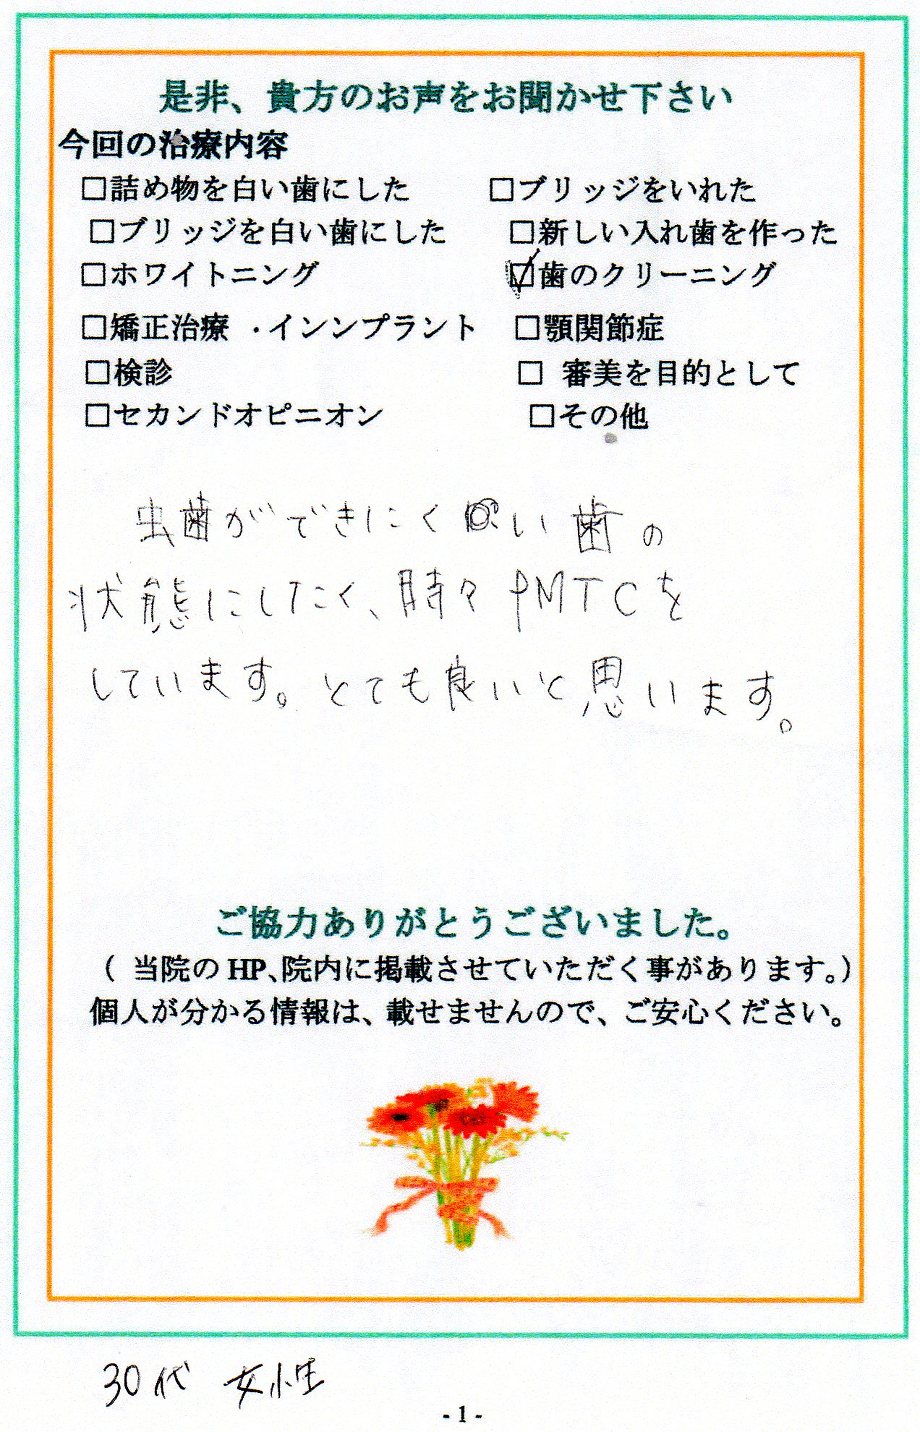 是非、貴方のお声をお聞かせ下さい
今回の治療内容
□詰め物を白い歯にした □ブリッジをいれた
□ブリッジを白い歯にした □新しい入れ歯を作った
□ホワイトニング ☑歯のクリーニング
□矯正治療 ・インンプラント □顎関節症
□検診 □ 審美を目的として
□セカンドオピニオン □その他
虫歯ができにくい歯の
状態にしたく、時々PMTCを
しています。とても良いと思います。
ご協力ありがとうございました。
( 当院のHP、院内に掲載させていただく事があります。)
個人が分かる情報は、載せませんので、ご安心ください。
30代 女性
- 1 -